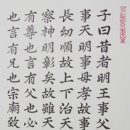 子曰昔者明王事父
事天明事母孝故事
長幼順故上下治天
察神明彰矣故雖天
有尊也言有父也必
也言有兄也宗廟致